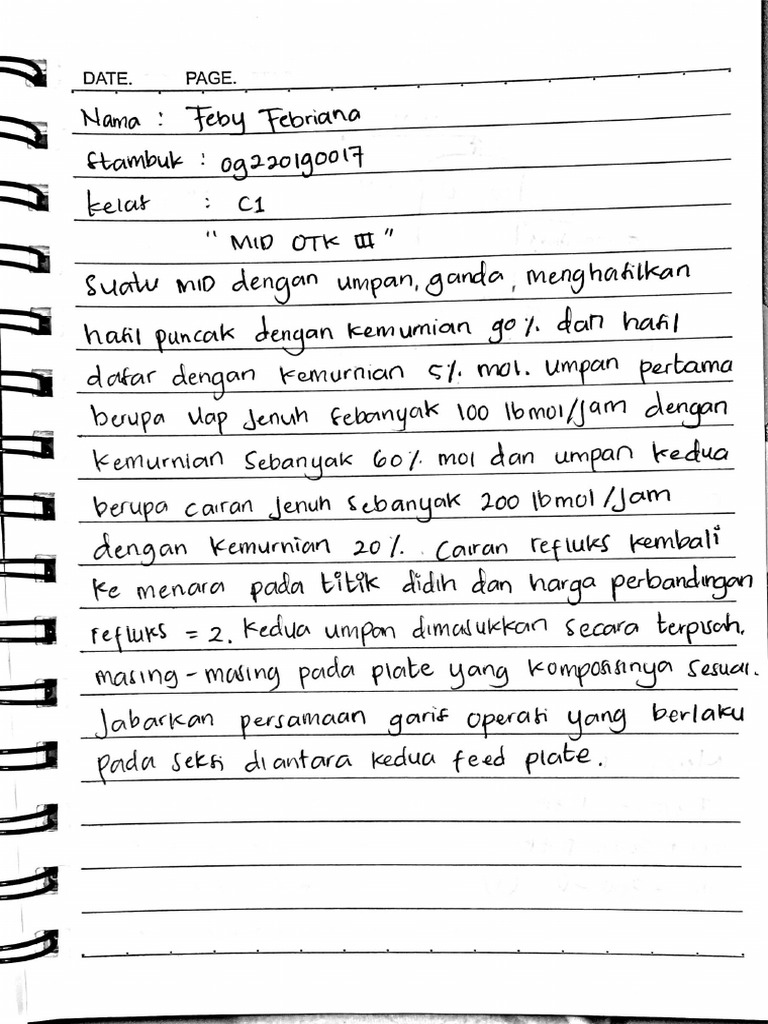 DATE. PAGE.
Nama : Feby Febriana
Stambuk : 09220190017
Kelas : C1
" MID OTK III "
Suatu MID dengan umpan, ganda, menghasilkan
hasil puncak dengan kemumian 90% dan hasil
dasar dengan kemurnian 5% mol. umpan pertama
berupa uap jenuh sebanyak 100 lbmol/jam dengan
kemurnian Sebanyak 60% mol dan umpan kedua
berupa cairan jenuh sebanyak 200 lbmol/jam
dengan kemurnian 20%. Cairan refluks kembali
ke menara pada titik didih dan harga perbandingan
refluks = 2. Kedua umpan dimasukkan secara terpisah,
masing-masing pada plate yang komposisinya sesuai.
Jabarkan persamaan garis operasi yang berlaku
pada seksi diantara kedua feed plate.